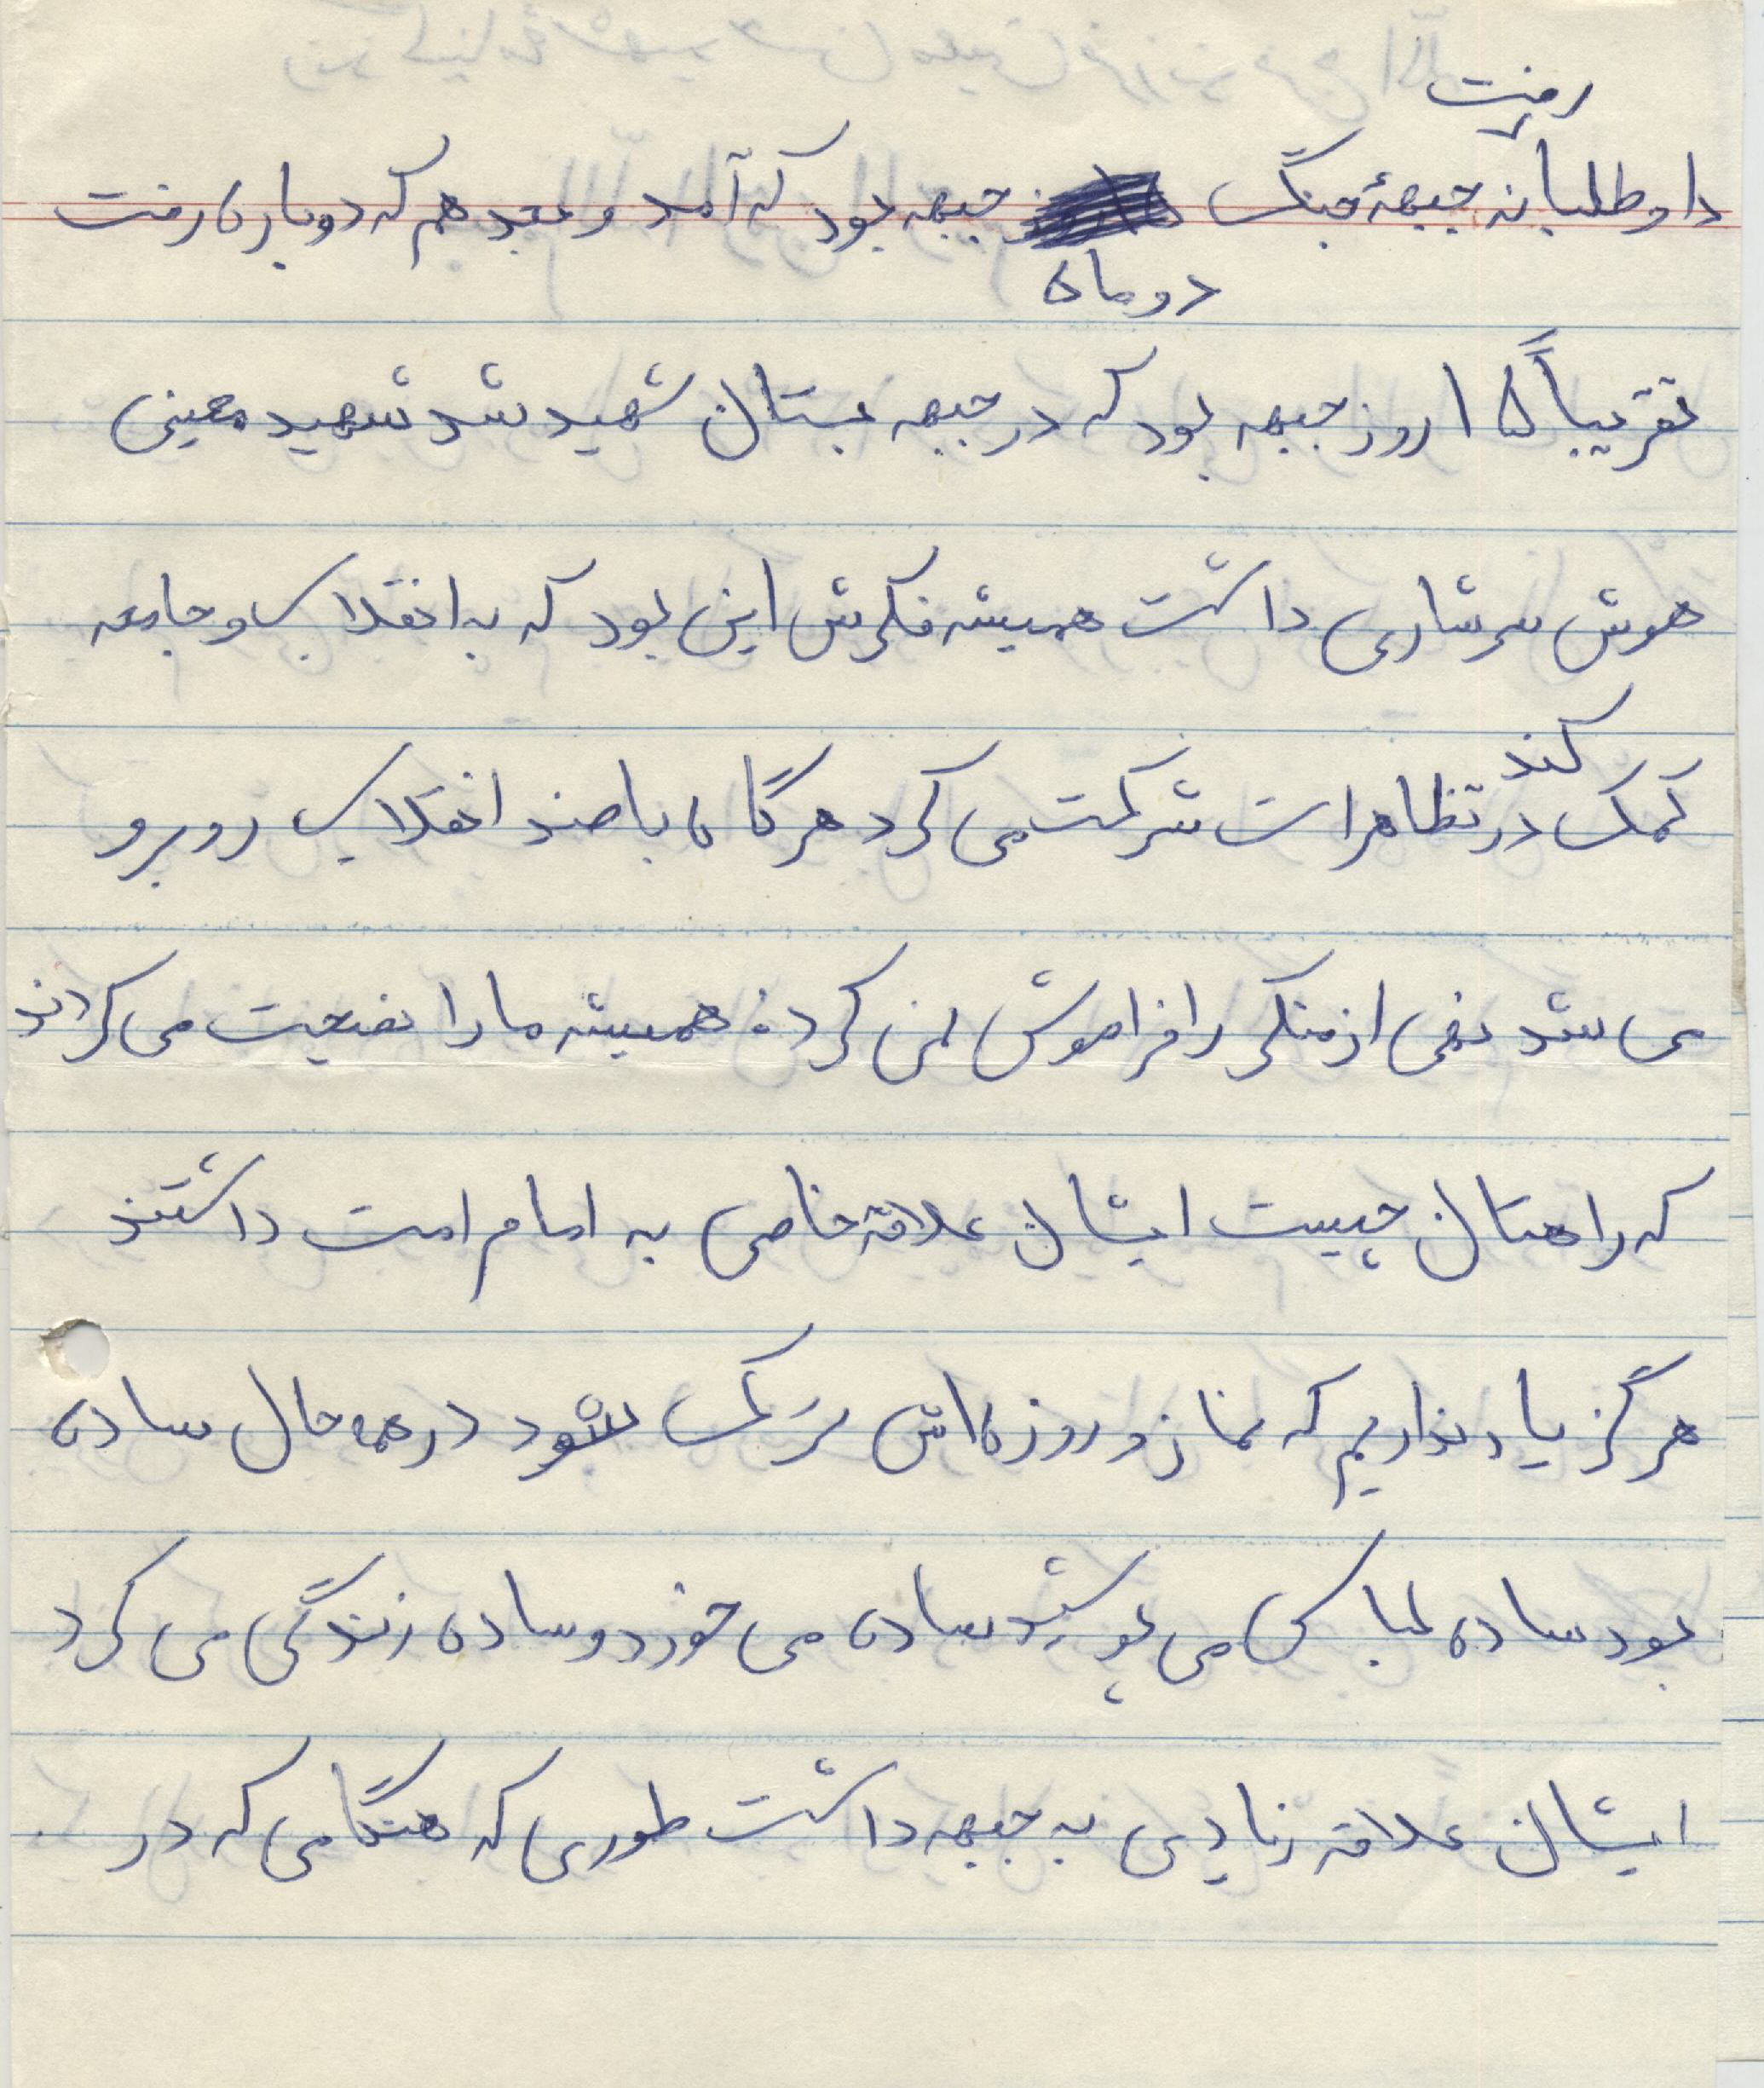 رفت
داوطلبانه جبههٔ جنگ جبهه بود که آمد و بعد هم که دوباره رفت
دو ماه
تقریباً ۱۵ روز جبهه بود که در جبهه بستان شهید شد شهید معینی
هوش سرشاری داشت همیشه فکرش این بود که به انقلاب و جامعه
کند
کمک در تظاهرات شرکت می کرد هرگاه با ضد انقلاب روبرو
می شد نهی از منکر را فراموش نمی کرد همیشه ما را نصیحت می کردند
که راهتان چیست ایشان علاقه خاصی به امام امت داشتند
هرگز یاد نداریم که نماز و روزه اش ترک شود در همه حال ساده
بود ساده لباس می پوشید ساده می خورد و ساده زندگی می کرد
ایشان علاقه زیادی به جبهه داشت طوری که هنگامی که در